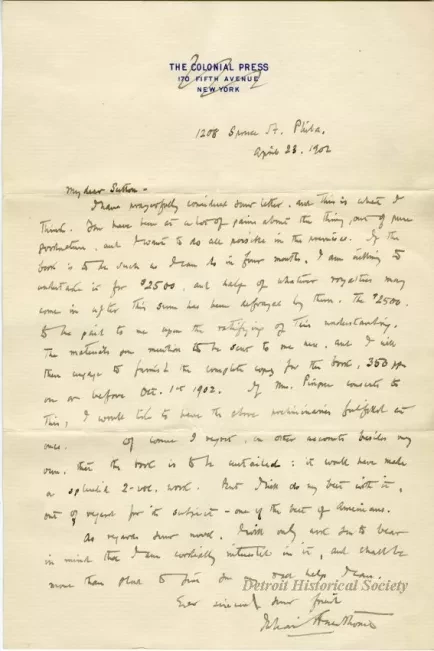 THE COLONIAL PRESS
170 FIFTH AVENUE
NEW YORK
1208 Spruce St. Phila.
April 23, 1902
My dear Sutton -
I have prayerfully considered your letter, and this is what I
think. You have been at a lot of pains about the thing, out of pure
goodnature, and I want to do all possible in the premises. If the
book is to be such as I can do in four months, I am willing to
undertake it for $2500, and half of whatever royalties may
come in after this sum has been defrayed by them. The $2500.
to be paid to me upon the ratifying of this understanding.
The materials you mention to be sent to me now, and I will
then engage to furnish the complete copy for the book, 350 pp
on or before Oct. 1st 1902. If Mr. consents to
this, I would like to have the above preliminaries fulfilled at
once. Of course I regret, on other accounts besides my
own, that the book is to be curtailed: it would have made
a splendid 2-vol. work. But I will do my best with it,
out of regard for its subject - one of the best of Americans.
As regards your novel, I will only ask you to bear
in mind that I am cordially interested in it, and shall be
more than glad to give you any help I can.
Ever sincerely your friend
Julian Hawthorne
Detroit Historical Society